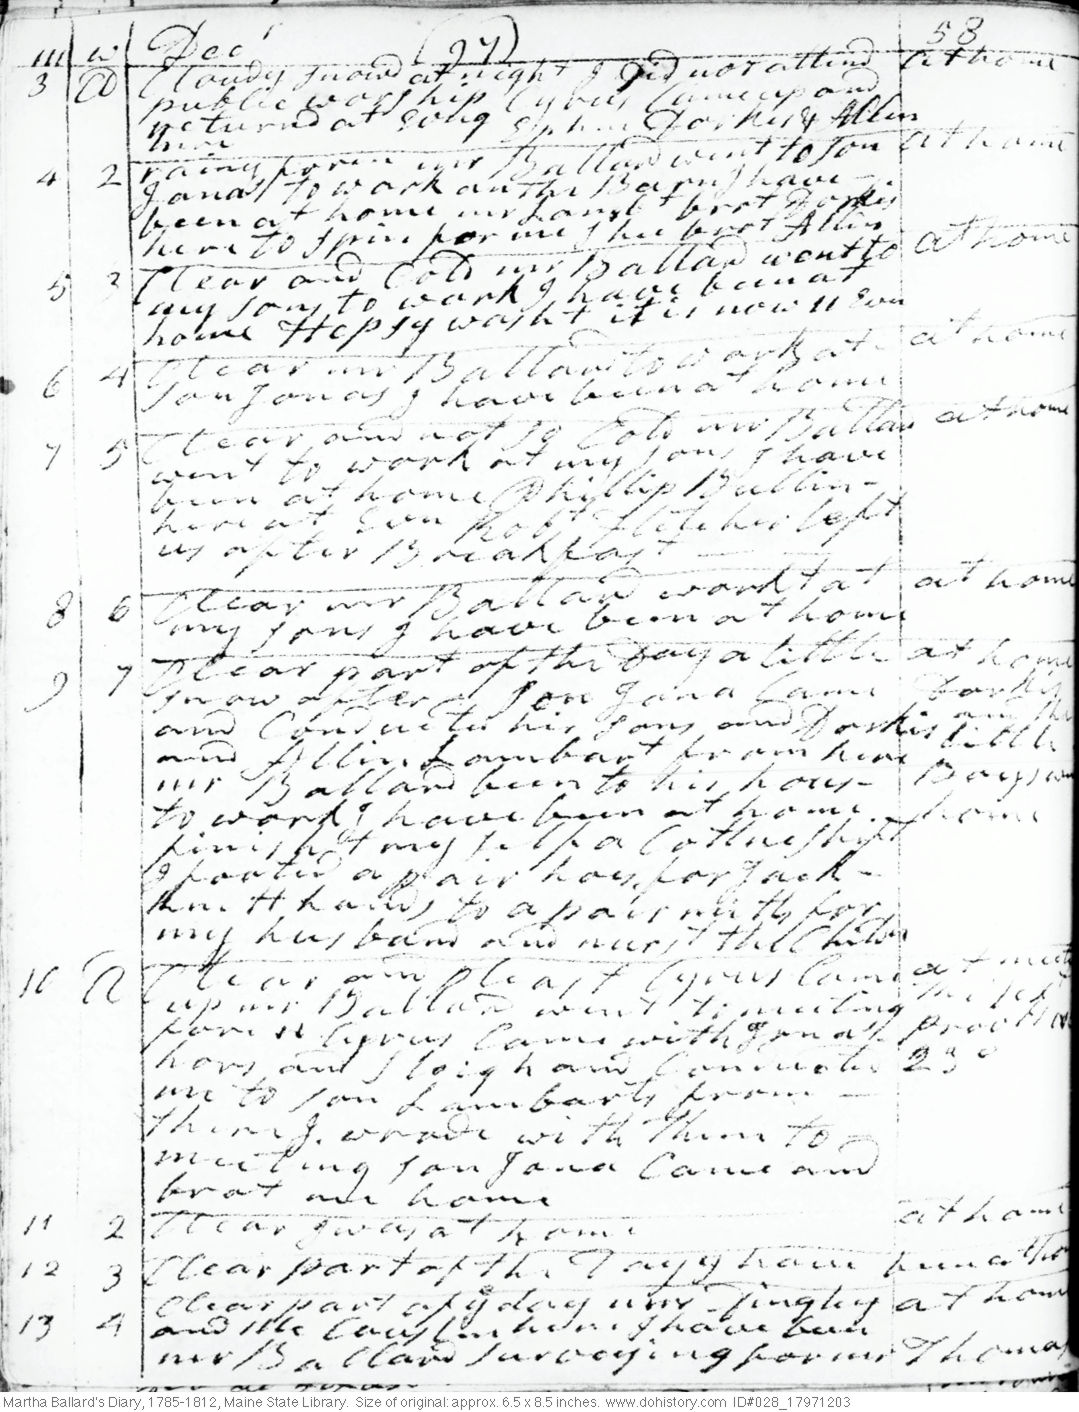 m w Decr (97) 58
3 D Cloudy snowd at night I did not attend at home
public worship Cyrus Came up and
returnd at Evng Ephm Dorkis & Allin
4 2 rainy foren mr Ballard went to son at home
Jonas to work on the Barn I have
been at home mr Lamb't brot Dorkis
here to spin for me Shee brot Allin
5 3 Clear and Cold mr Ballard went to at home
my sons to work I have been at
home Hepsy washt it is now 11 Evn
6 4 Clear mr Ballard to work at at home
son Jonas I have been at home
7 5 Clear and not so Cold mr Ballard at home
went to work at my sons I have
been at home Phillip Bullin
here at Evn Robt Fletcher left
us after Breakfast
8 6 Clear mr Ballard workt at at home
my sons I have been at home
9 7 Clear part of the Day a little at home
snow after Son Jona Came Dorkis
and Conducted his sons and Dorkis and the
and Allin Lambart from here little
mr Ballard been to his hous Boys went
to work I have been at home home
finisht my self a Cottne shift
I footed a pair hous for Jack
knitt hands to a pair mitts for
my husband and nurst the Childn
10 D Clear and Pleast Cyrus Came at meeting
up mr Ballard went to meeting
foren Cyrus Came with Jonas
hors and Sleigh and Conducted 23°
me to son Lambarts from
there I wrode with them to
meeting son Jona Came and
brot me home
11 2 Clear I was at home at home
12 3 Clear part of the Day I have been at home
13 4 Clear part of ye day mrs Tingley at home
and Mc Causlin here I have been
mr Ballard surveying for mr Thomas
Martha Ballard's Diary, 1785-1812, Maine State Library. Size of original: approx. 6.5 x 8.5 inches. www.dohistory.com ID#028_17971203